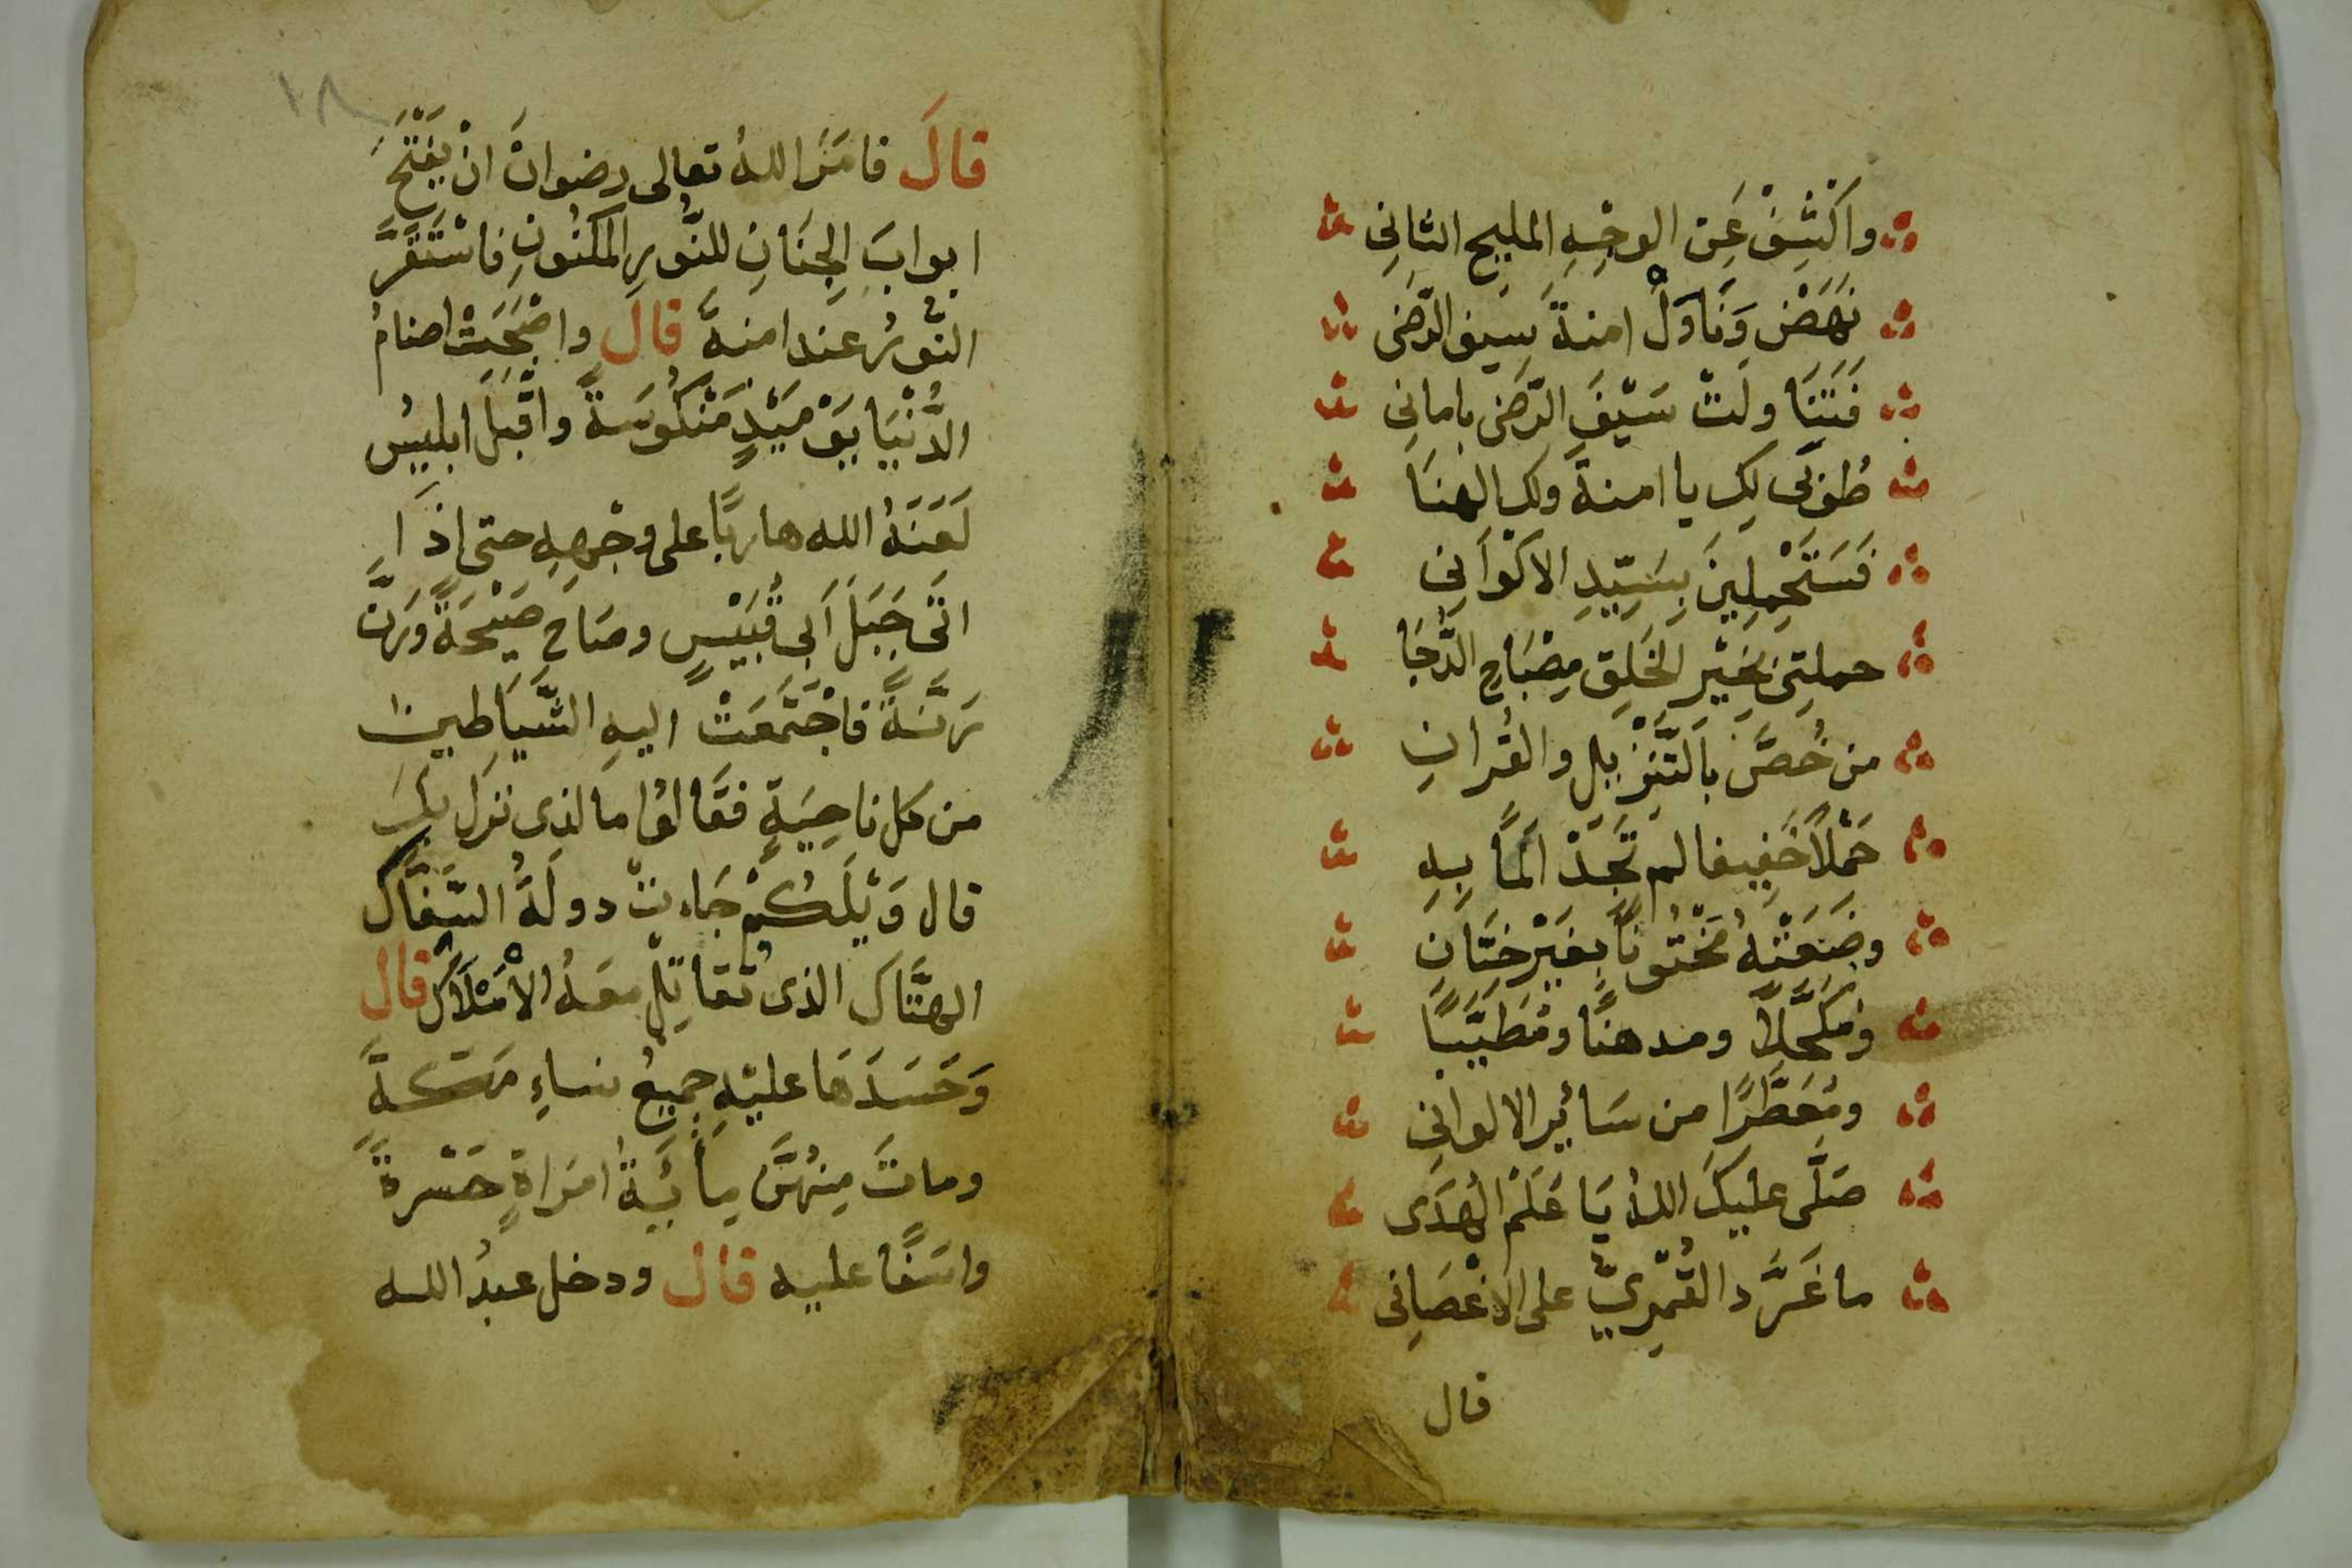 واكْشِفْ عَنِ الوجْهِ المليحِ الثانِي
نَهَضَ وَنَاوَلْ امنةَ سَيفَ الرَّضى
فَتَنَاولَتْ سَيْفَ الرَّضى بامانِي
طُوبَى لكِ يا امنةَ ولكِ الهنَا
فَسَتَحْمِلِينَ بِسَيِّدِ الاكْوَانِي
حملتِي بخَيْرِ الخَلقِ مِصْبَاحِ الدُّجَا
من خُصَّ بالتَّنْزِيلِ والقُرانِ
حَمْلاً خَفِيفا لم تَجَدْ الَمًا بِهِ
وضَعَتْهُ مَخْتُونًا بِغَيْرِ خِتَانِ
ومُكَحَّلاً ومدهنًا ومُطَيَّبًا
ومُعَطَّرًا من سَائِرِ الالوانِي
صَلَّى عليكَ اللهُ يَا عَلَمَ الهُدَى
ما غَرَّدَ القُمْرِيُّ على الاغْصَانِي
قال
١٨
قالَ فامَرَ اللهُ تعالى رضوانَ انْ يَفْتَحَ
ابوابَ الجِنَانِ للنُّورِ المكْنُونِ فاسْتَقَرَّ
النُّورُ عند امنةَ قال واصْبَحَتْ اصنامُ
الدُّنْيَا يَوْمَيْذٍ مَنْكُوسَةً واقْبَلَ ابليسُ
لَعَنَهُ الله هاربًا على وجْهِهِ حتى اذَا
اتَى جَبَلَ اَبى قُبَيْسٍ وصَاحَ صَيْحَةً وَرَنَّ
رَنَّةً فاجْتَمَعَتْ اليهِ الشَّيَاطِين
من كل ناحِيَةٍ فقَالوُا مالذِى نزَلَ بكَ
قال وَيْلَكُمْ جَاءتْ دولَةُ السَّفَّاكَ
الهتَّاكَ الذى تُقَاتِلُ معَهُ الأمْلَاكُ قال
وَحَسَدَهَا عليْهِ جميعُ نساءِ مَكةَ
وماتَ مِنهُنَّ مِائَيةُ امرَاةٍ حَسْرةً
واسَفًا عليه قال ودخل عبدُ الله